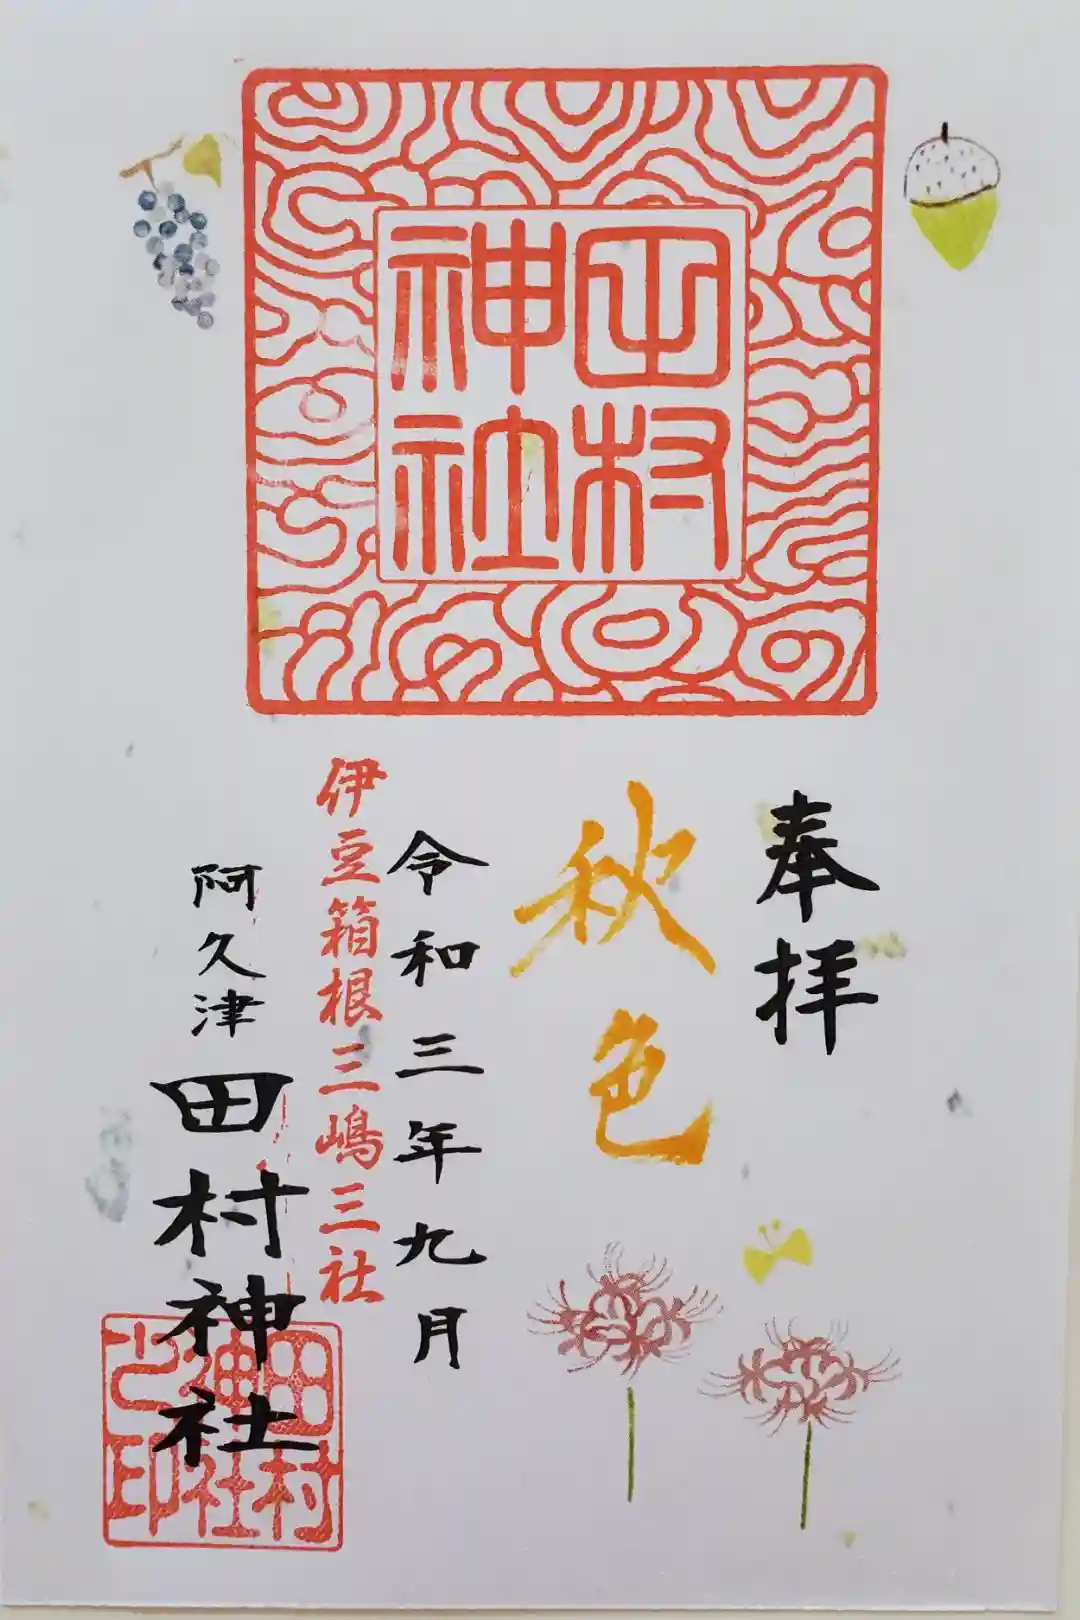 田村
神社
奉拝
秋色
令和三年九月
伊豆箱根三嶋三社
阿久津田村神社
田村
神社
之印